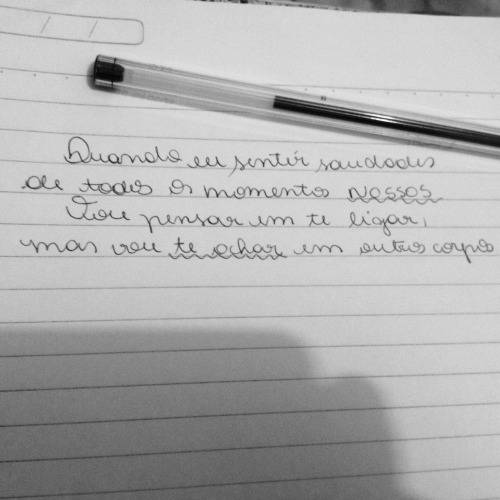 Quando eu sentir saudades
de todos os momentos nossos
Vou pensar em te ligar,
mas vou te achar em outros corpos